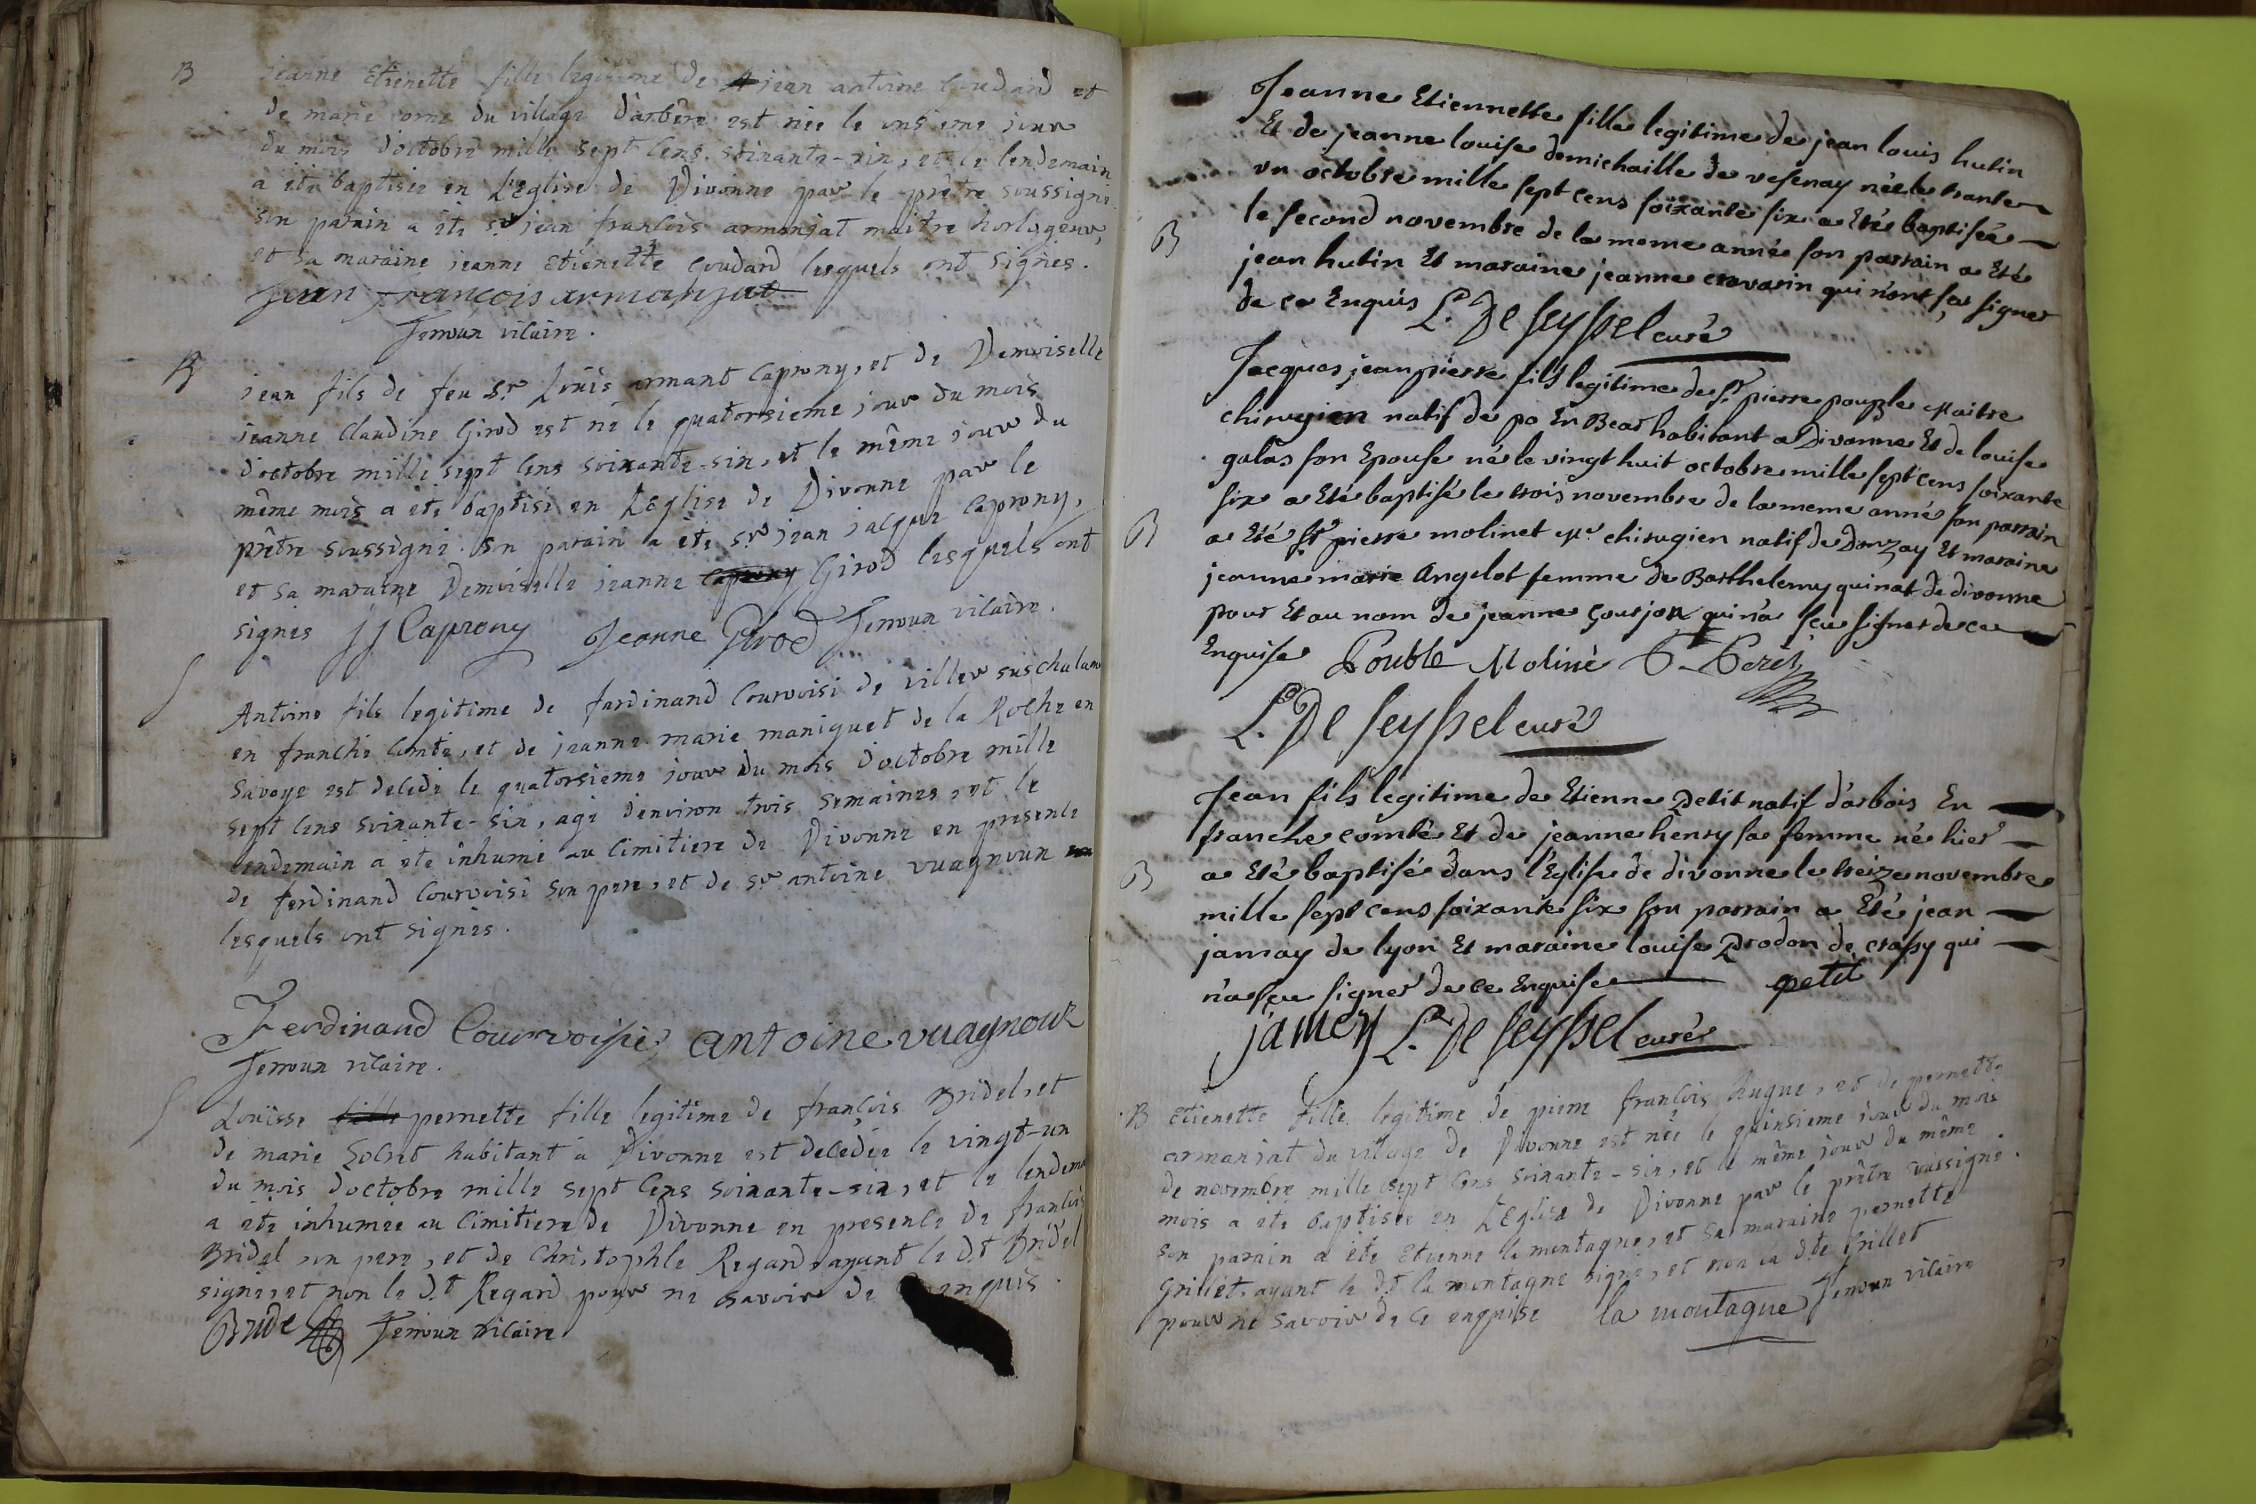 B
jeanne Etienette fille legitime de jean antoine Coudard et
de marie orne du village d'arbère est née le onsieme jour
du mois d'octobre mille sept cens soixante-six, et le lendemain
a été baptisée en L'Eglise de Divonne par le prêtre soussigné
son parain a été sr jean françois armanjat maitre horlogeur,
et sa maraine jeanne etienette coudard lesquels ont signés.
Jean françois armanjat
Jenoux vicaire.
B
jean fils de feu sr Loüis armant Caprony, et de Demoiselle
jeanne Claudine Girod est né le quatorsieme jour du mois
d'octobre mille sept cens soixante-six, et le même jour du
même mois a été baptisé en L'Eglise de Divonne par le
prêtre soussigné. son parain a été sr jean jacque Caprony,
et sa maraine Demoiselle jeanne Caprony Girod lesquels ont
signés JJ Caprony Jeanne Girod Jenoux vicaire.
S
Antoine fils legitime de fardinand Courvoisi de viller suschalam
en franche Comté, et de jeanne marie maniguet de la Roche en
Savoye est decedé le quatorsieme jour du mois d'octobre mille
sept cens soixante-six, agé d'environ trois semaines, et le
lendemain a été inhumé au cimitiere de Divonne en presence
de ferdinand Courvoisi son pere, et de sr antoine vuagnoux
lesquels ont signés.
Ferdinand Courvoisie antoine vuagnoux
Jenoux vicaire.
S
Louïsse fille pernette fille legitime de françois Bridel, et
de marie Solset habitant à Divonne est decedée le vingt-un
du mois d'octobre mille sept cens soixante-six, et le lendem
a été inhumée au cimitiere de Divonne en presence de françois
Bridel son pere, et de Christophle Regard, ayant le d.t Bridel
signé, et non le d.t Regard pour ne savoir de enquis.
Bridel Jenoux vicaire
Jeanne Etiennette fille legitime de jean louis hutin
Et de jeanne louise demichaille de vesenay née le trante
un octobre mille sept cens soixante six a eté baptisée
B
le second novembre de la meme anné son parrain a eté
jean hutin Et maraine jeanne cravarin qui n'ont sçu signer
de ce Enquis L. De seyssel curé
Jacques jean pierre fils legitime de Sr pierre pouble Maitre
chirugien natif de po En Bear habitant a Divonne Et de louise
galas son Epouse né le vingt huit octobre mille sept cens soixante
six a eté baptisé le trois novembre de la meme anné son parrain
B
a eté Sr pierre molinet Mr chirugien natif de Donzay Et maraine
jeanne marie Angelot femme de Barthelemy quinat de divonne
pour Et au nom de jeanne gourjon qui n'a sçeu signer de ce
Enquise Pouble Moliné
L. De seyssel curé
Jean fils legitime de Etienne petit natif d'arbois En
franche comté Et de jeanne henry sa femme né hier
B
a eté baptisé dans l'Eglise de divonne le treize novembre
mille sept cens soixante six son parrain a eté jean
jamay de lyon Et maraine louise prodon de crassy qui
n'a sçeu signer de ce Enquise petit
jamey L. De seyssel curé
B
Etienette fille legitime de pierre françois hugue, et de pernette
armanjat du village de Divonne est née le quinsieme jour du mois
de novembre mille sept cens soixante-six, et le même jour du même
mois a été baptisée en L'Eglise de Divonne par le prêtre soussigné.
son parain a été Etienne la montagne, et sa maraine pernette
Grillet, ayant le d.t la montagne signé, et non la d.te Grillet
pour ne savoir de ce enquise la montagne Jenoux vicaire